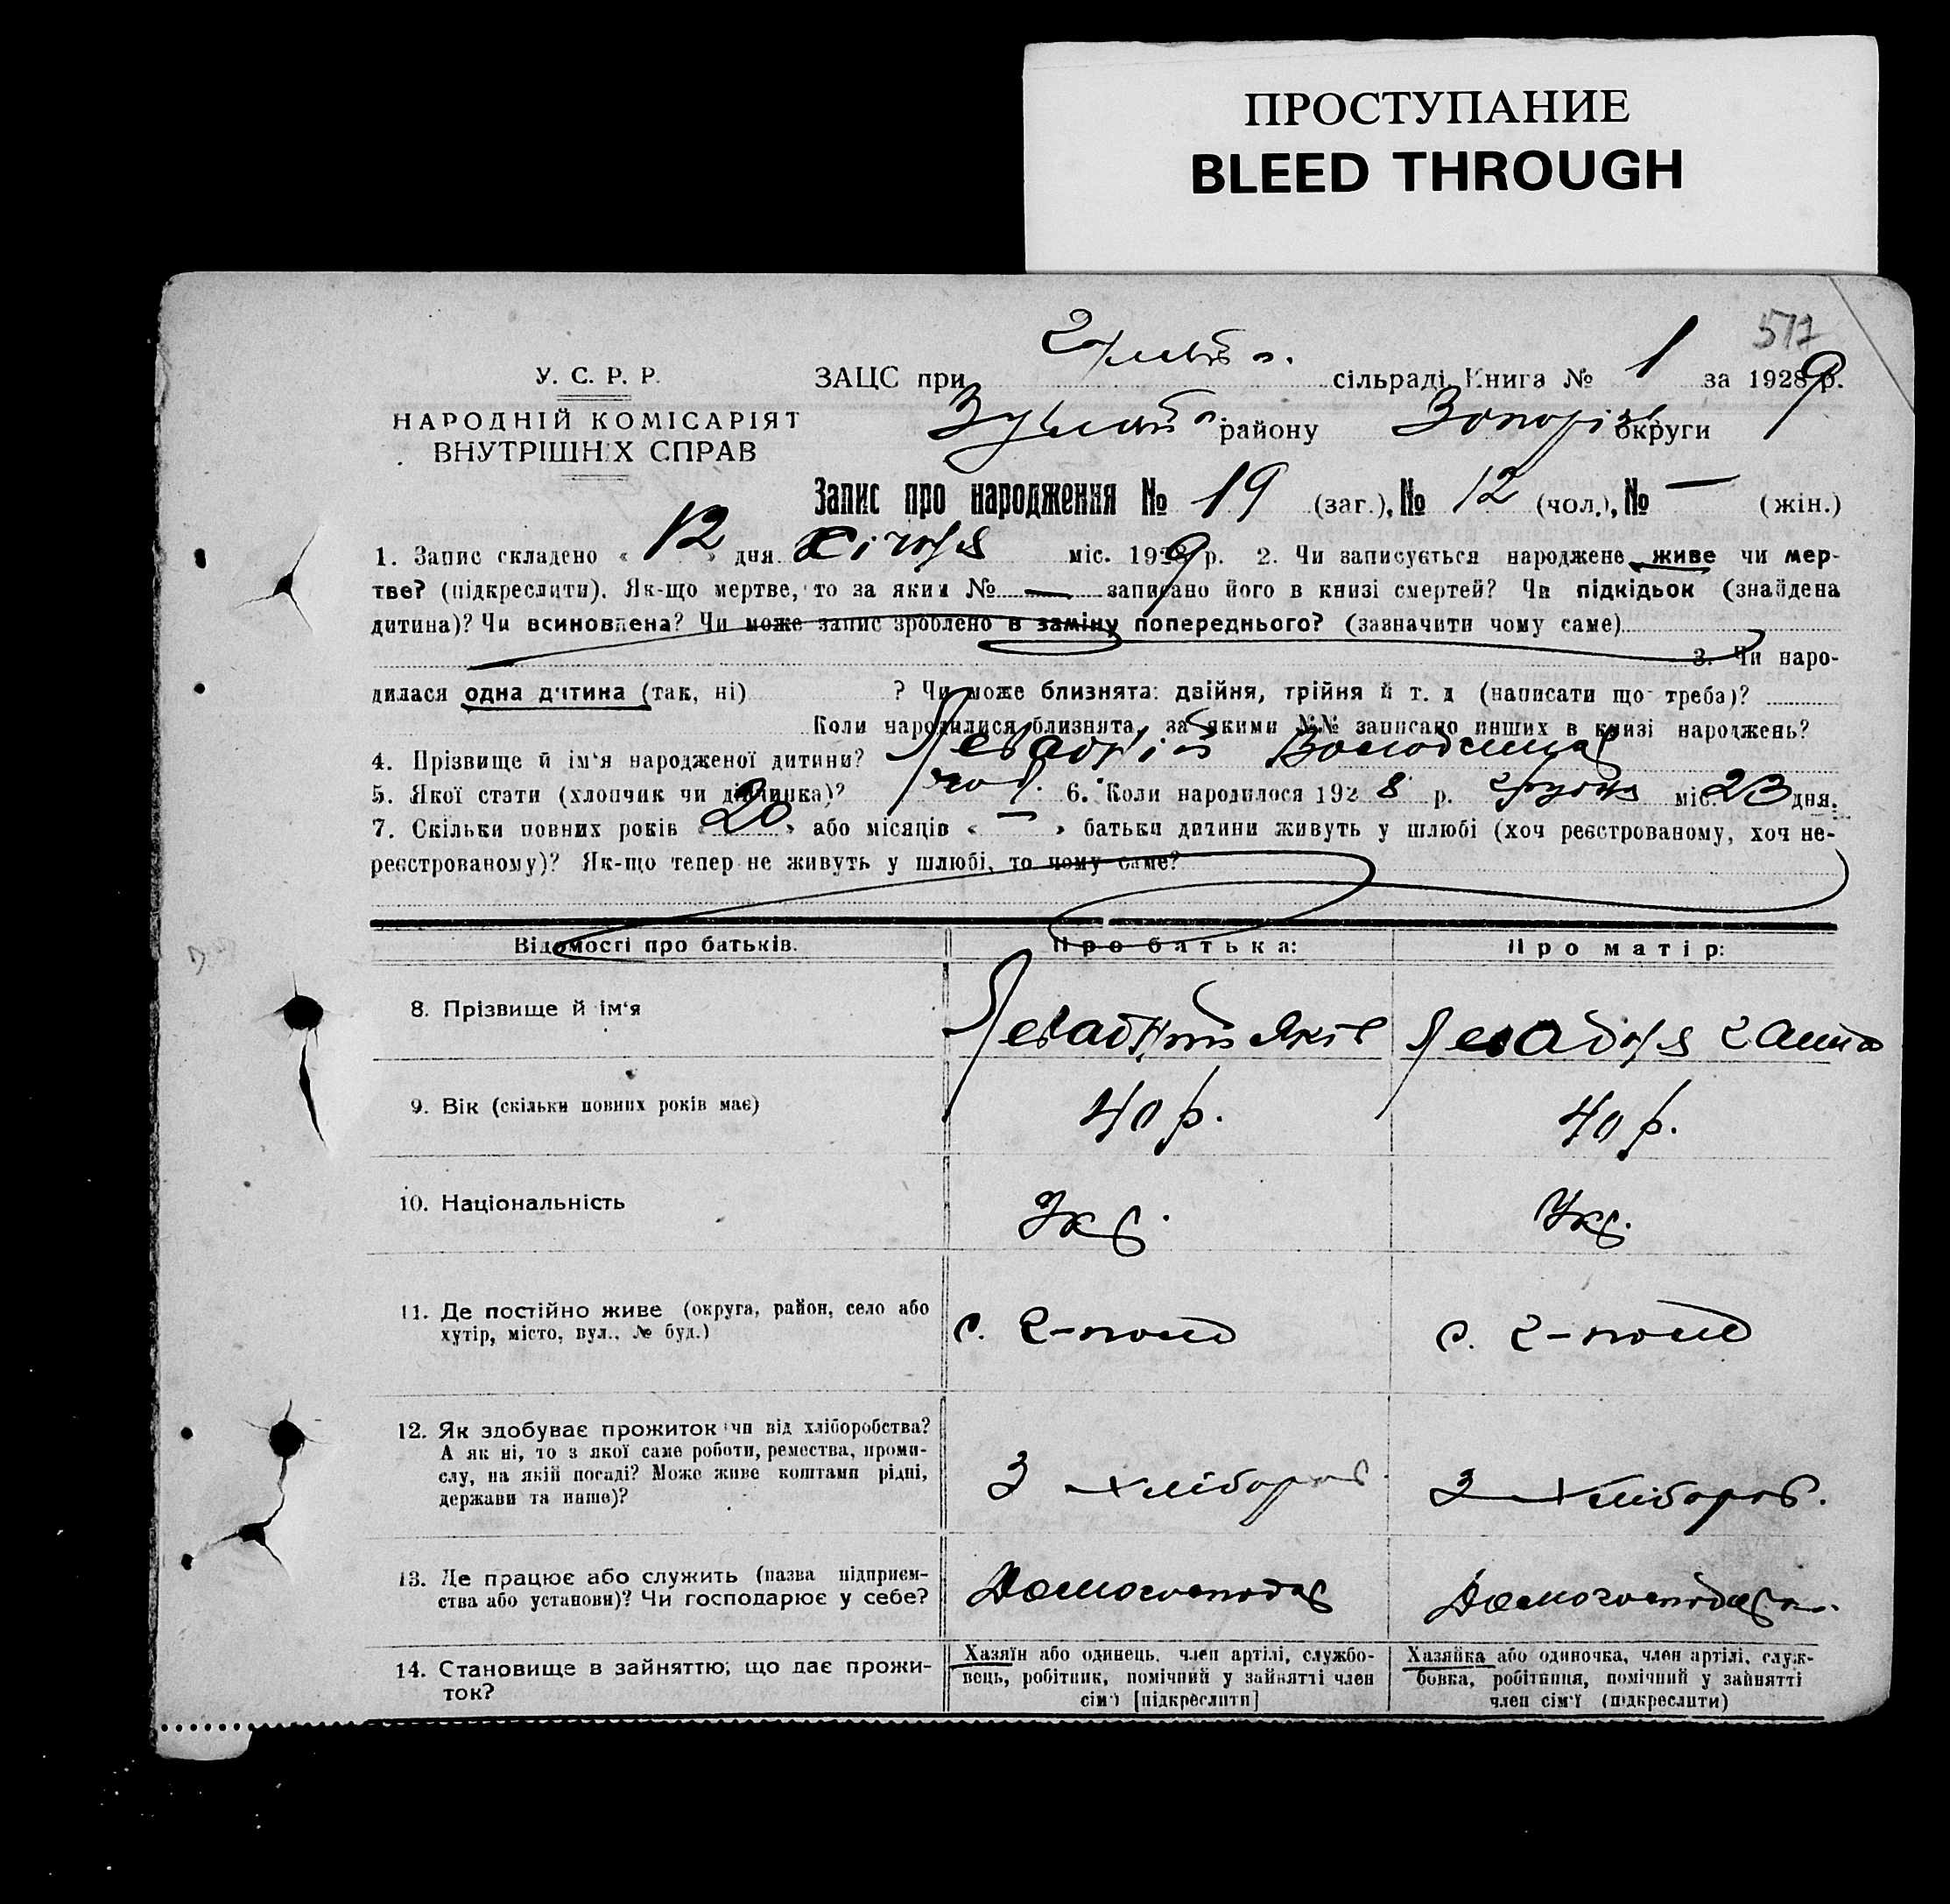 ПРОСТУПАНИЕ
BLEED THROUGH
517
У. С. Р. Р.
НАРОДНІЙ КОМІСАРІЯТ
ВНУТРІШНІХ СПРАВ
ЗАЦС при сільраді. Книга № 1 за 1929 р.
району Запоріз округи
Запис про народження № 19 (заг.), № 12 (чол.), № — (жін.)
1. Запис складено « 12 » дня Січня міс. 1929 р. 2. Чи записується народжене живе чи мер-
тве? (підкреслити). Як-що мертве, то за яким № — записано його в книзі смертей? Чи підкідьок (знайдена
дитина)? Чи всиновлена? Чи може запис зроблено в заміну попереднього? (зазначити чому саме)
3. Чи наро-
дилася одна дитина (так, ні) ? Чи може близнята: двійня, трійня й т. д (написати що треба)?
Коли народилися близнята, за якими №№ записано инших в книзі народжень?
4. Прізвище й ім'я народженої дитини? Левадній Володимир
5. Якої стати (хлопчик чи дівчинка)? чол. 6. Коли народилося 1928 р. грудня міс. 23 дня.
7. Скільки повних років « 20 » або місяців « — » батьки дитини живуть у шлюбі (хоч реєстрованому, хоч не-
реєстрованому)? Як-що тепер не живуть у шлюбі, то чому саме?
Відомості про батьків. Про батька: Про матір:
8. Прізвище й ім'я Левадний Яків Левадня Ганна
9. Вік (скільки повних років має) 40 р. 40 р.
10. Національність Укр. Укр.
11. Де постійно живе (округа, район, село або
хутір, місто, вул., № буд.) с. Г-поле с. Г-поле
12. Як здобуває прожиток чи від хліборобства?
А як ні, то з якої саме роботи, ремества, проми-
слу, на якій посаді? Може живе коштами рідні,
держави та инше)? З хлібороб. З хлібороб.
13. Де працює або служить (назва підприєм-
ства або установи)? Чи господарює у себе? Домогосподар Домогосподарка.
14. Становище в зайняттю, що дає прожи-
ток?
Хазяїн або одинець, член артілі, службо-
вець, робітник, помічний у зайнятті член
сім'ї [підкреслити]
Хазяйка або одиночка, член артілі, служ-
бовка, робітниця, помічний у зайнятті
член сім'ї (підкреслити)